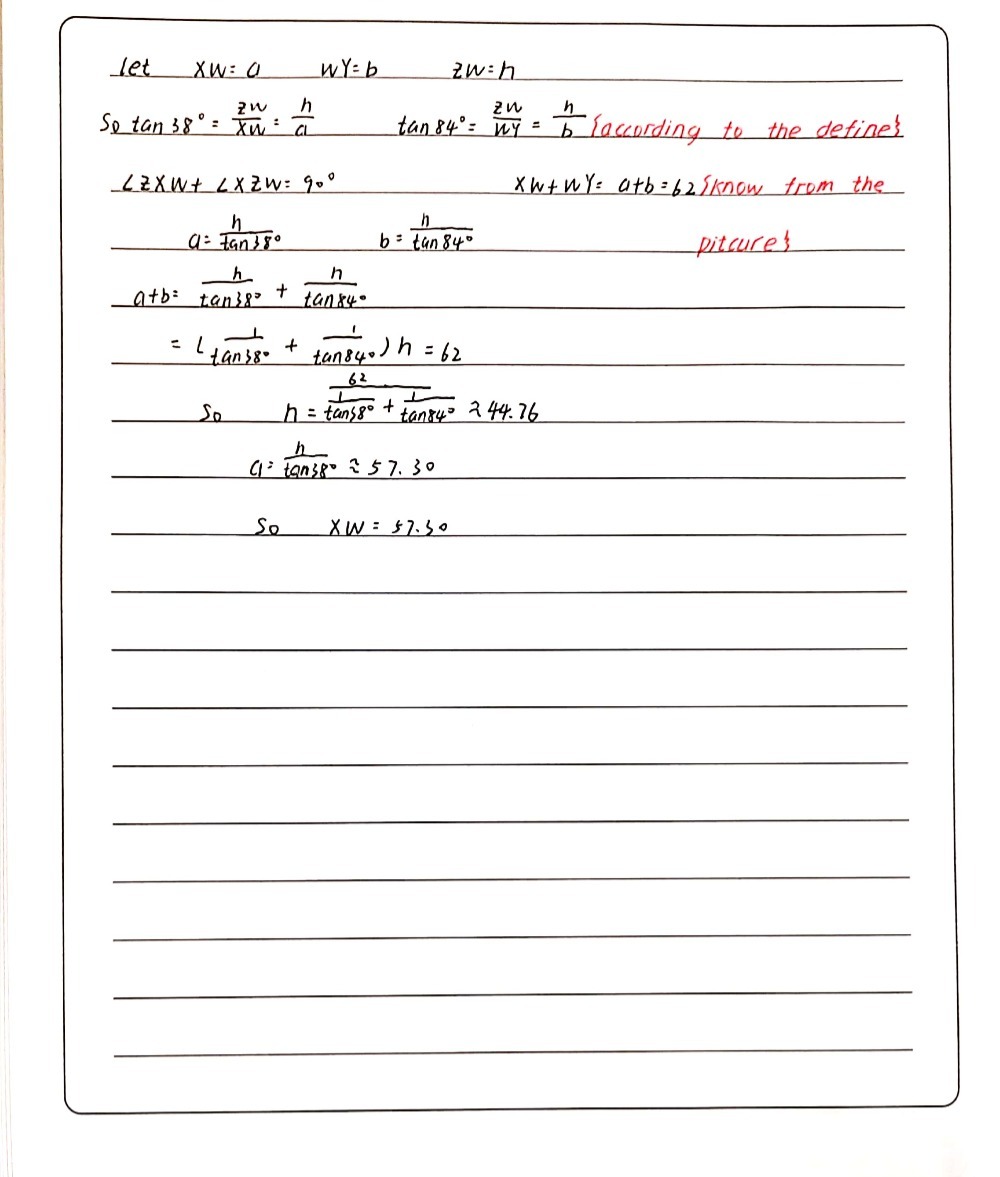 let XW= a WY=b ZW=h
So tan 38°= ZW/XW = h/a tan 84°= ZW/WY = h/b {according to the define}
∠ZXW+ ∠XZW= 90° XW+WY= a+b=62 {know from the
a= h/tan38° b= h/tan84° pitcure}
a+b= h/tan38° + h/tan84°
= (1/tan38° + 1/tan84°) h = 62
So h = 62/(1/tan38° + 1/tan84°) ≈ 44.76
a= h/tan38° ≈ 57.30
So XW = 57.30